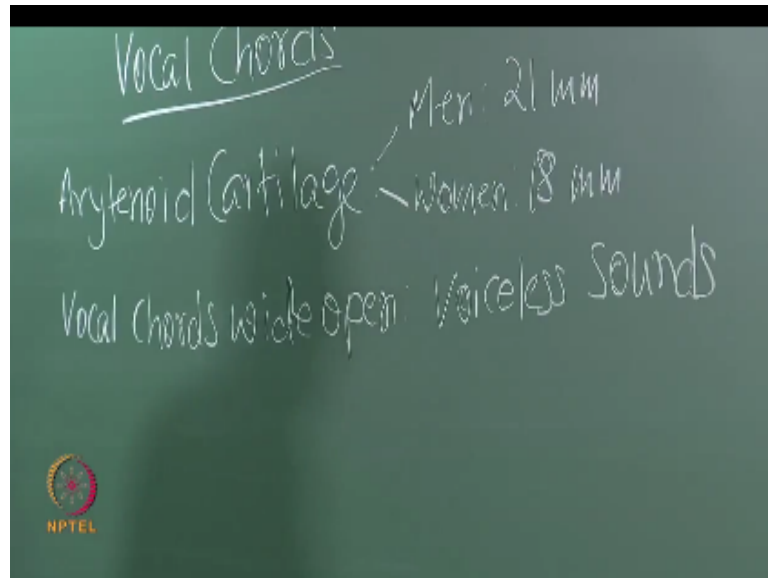 Vocal Chords
Men: 21 mm
Arytenoid Cartilage
Women: 18 mm
Vocal Chords wide open: Voiceless Sounds
NPTEL